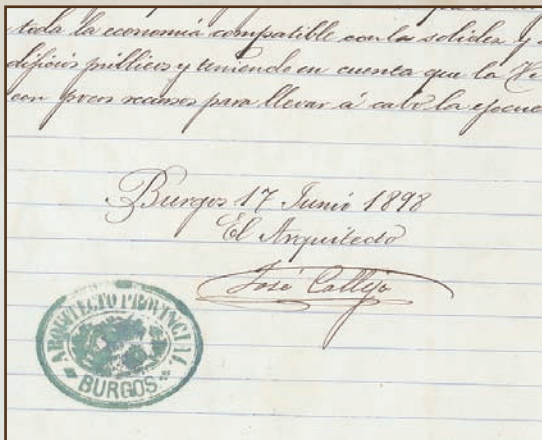 toda la economía compatible con la solidez y
dificios públicos y teniendo en cuenta que la
con pocos recursos para llevar á cabo la ejecuc
Burgos 17 Junio 1898
El Arquitecto
José Calleja
ARQUITECTO PROVINCIAL
BURGOS